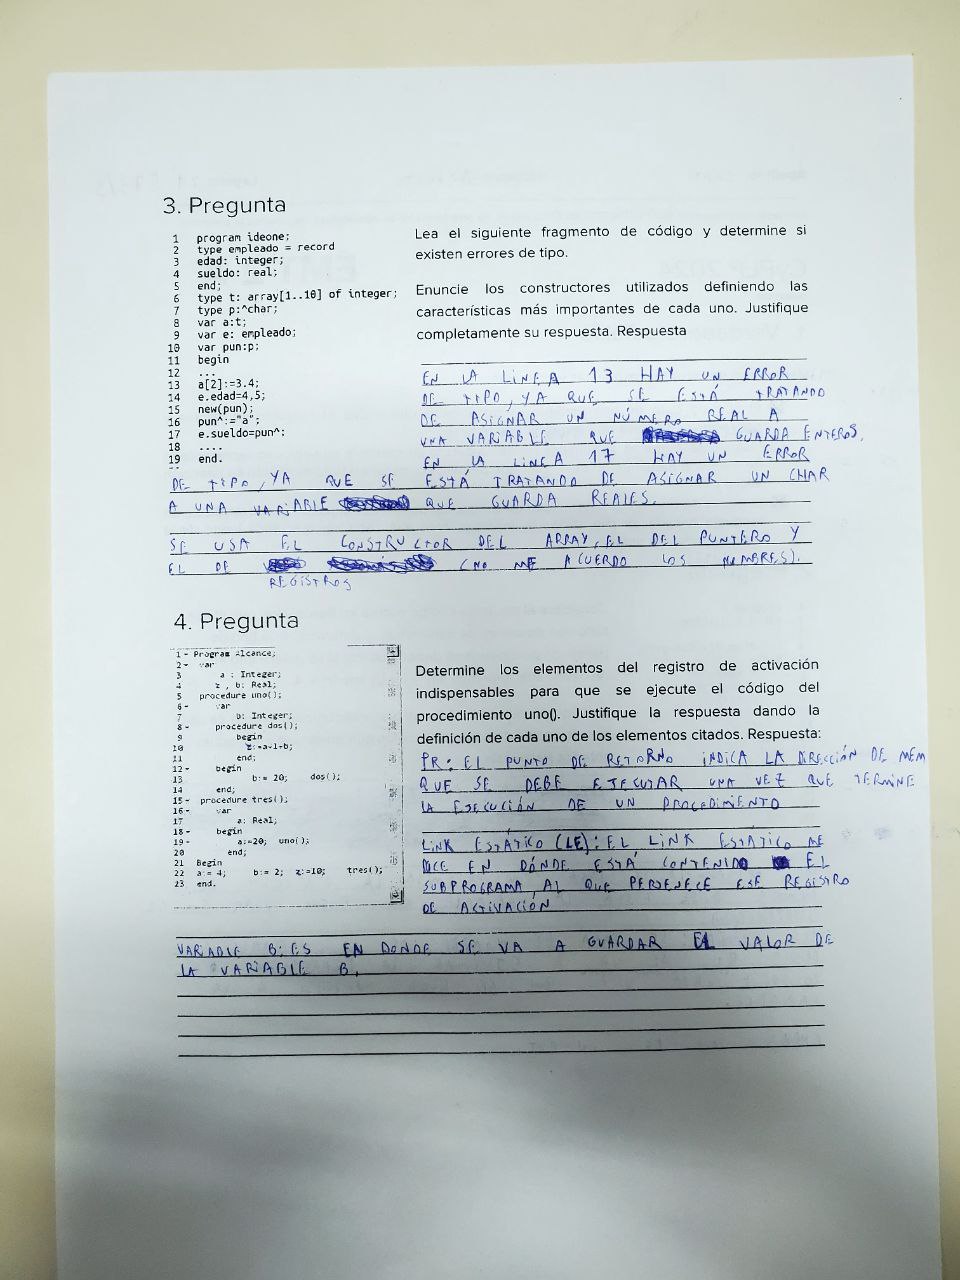 3. Pregunta
1 program ideone;
2 type empleado = record
3 edad: integer;
4 sueldo: real;
5 end;
6 type t: array[1..10] of integer;
7 type p:^char;
8 var a:t;
9 var e: empleado;
10 var pun:p;
11 begin
12 ...
13 a[2]:=3.4;
14 e.edad=4,5;
15 new(pun);
16 pun^:="a";
17 e.sueldo=pun^;
18 ....
19 end.
Lea el siguiente fragmento de código y determine si
existen errores de tipo.
Enuncie los constructores utilizados definiendo las
características más importantes de cada uno. Justifique
completamente su respuesta. Respuesta
EN LA LiNEA 13 HAY UN ERROR
DE TIPO, YA QUE SE ESTÁ TRATANDO
DE ASIGNAR UN NÚMERO REAL A
UNA VARIABLE QUE GUARDA ENTEROS.
EN LA LINEA 17 HAY UN ERROR
DE TIPO, YA QUE SE ESTÁ TRATANDO DE ASIGNAR UN CHAR
A UNA VARIABLE QUE GUARDA REALES.
SE USA EL CONSTRUCTOR DEL ARRAY, EL DEL PUNTERO Y
EL DE (NO ME ACUERDO LOS NOMBRES).
REGISTROS
4. Pregunta
1- Program Alcance;
2- var
3 a : Integer;
4 z , b: Real;
5 procedure uno();
6- var
7 b: Integer;
8- procedure dos();
9 begin
10 z:=a+1+b;
11 end;
12- begin
13 b:= 20; dos();
14 end;
15- procedure tres();
16- var
17 a: Real;
18- begin
19- a:=20; uno();
20 end;
21 Begin
22 a:= 4; b:= 2; z:=10; tres();
23 end.
Determine los elementos del registro de activación
indispensables para que se ejecute el código del
procedimiento uno(). Justifique la respuesta dando la
definición de cada uno de los elementos citados. Respuesta:
PR: EL PUNTO DE RETORNO iNDICA LA DIRECCIÓN DE MEM
QUE SE DEBE EJECUTAR UNA VEZ QUE TERMINE
LA EJECUCIÓN DE UN PROCEDIMIENTO
LiNK ESTÁTICO (LE): EL LINK ESTÁTICO ME
DICE EN DÓNDE ESTÁ CONTENIDO EL
SUBPROGRAMA AL QUE PERTENECE ESE REGISTRO
DE ACTIVACIÓN
VARIABLE B: ES EN DONDE SE VA A GUARDAR EL VALOR DE
LA VARIABLE B.